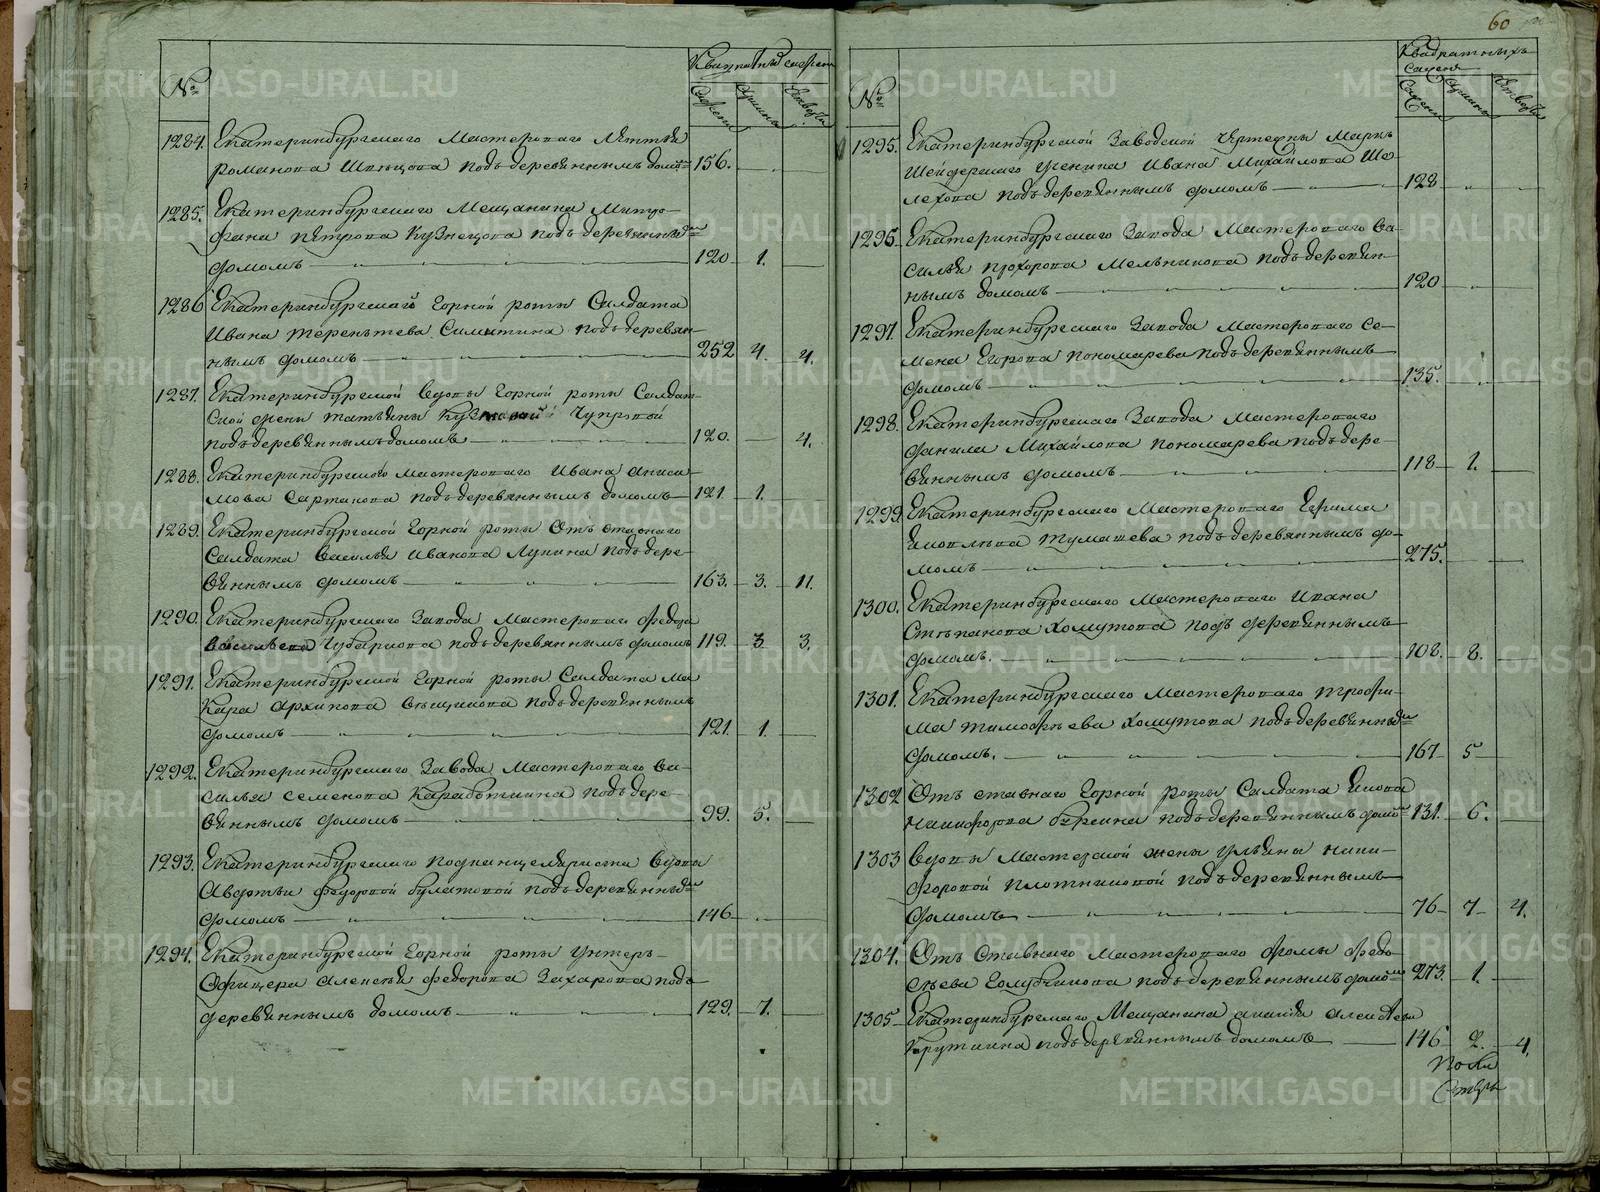 №
Квадратныхъ сажен
Сажени
Аршины
1284. Екатеринбургскаго Мастероваго
Романова подъ деревяннымъ домомъ 156.
1285. Екатеринбургскаго Мещанина Митро-
фана Петрова Кузнецова подъ деревяннымъ
домомъ 120 1.
1286 Екатеринбургской Горной роты Салдата
Ивана Терентьева подъ деревян-
нымъ домомъ 252 4. 4.
1287. Екатеринбургской вдовы Горной роты Салдат-
ской жены Татьяны
подъ деревяннымъ домомъ 120. 4.
1288. Екатеринбургскаго Мастероваго Ивана Аниси-
мова Сартакова подъ деревяннымъ домомъ 121. 1.
1289. Екатеринбургской Горной роты Отъ ставнаго
Салдата Василья Иванова Лунина подъ дере-
вяннымъ домомъ 163. 3. 11.
1290. Екатеринбургскаго Завода Мастероваго Федора
Васильева подъ деревяннымъ домомъ 119. 3 3.
1291. Екатеринбургской Горной роты Салдата Ма
кара Архипова подъ деревяннымъ
домомъ 121. 1.
1292. Екатеринбургскаго Завода Мастероваго Ва-
силья Семенова подъ дере-
вяннымъ домомъ 99. 5.
1293. Екатеринбургскаго вдовы
Авдотьи Федоровой Булатовой подъ деревяннымъ
домомъ 146
1294. Екатеринбургской Горной роты Унтеръ-
Офицера Алексея Федорова Захарова подъ
деревяннымъ домомъ 129. 7.
60
№
Квадратныхъ
сажен
Сажени
Аршины
1295. Екатеринбургской Заводской Чертежны Марк-
шейдерскаго Ученика Ивана Михайлова Ше-
лехова подъ деревяннымъ домомъ 128
1296. Екатеринбургскаго Завода Мастероваго Ва-
силья Прохорова Мельникова подъ деревян-
нымъ домомъ 120
1297. Екатеринбургскаго Завода Мастероваго Се-
мена Егорова Пономарева подъ деревяннымъ
домомъ 135.
1298. Екатеринбургскаго Завода Мастероваго
Данила Михайлова Пономарева подъ дере-
вяннымъ домомъ 118 1.
1299. Екатеринбургскаго Мастероваго Ефима
Яковлева Тумашева подъ деревяннымъ до-
момъ 275.
1300. Екатеринбургскаго Мастероваго Ивана
Степанова Хомутова подъ деревяннымъ
домомъ. 108. 8.
1301. Екатеринбургскаго Мастероваго Трофи-
ма Тимофеева Хомутова подъ деревяннымъ
домомъ. 167 5
1302 Отъ ставнаго Горной роты Салдата Якова
Никифорова подъ деревяннымъ домомъ 131. 6.
1303 Вдовы Мастерской жены Ульяны Ники-
форовой Плотниковой подъ деревяннымъ
домомъ 76 7 4.
1304. Отъ Ставнаго Мастероваго Фомы Федо-
сеева Голубчикова подъ деревяннымъ домомъ 273. 1.
1305 Екатеринбургскаго Мещанина
подъ деревяннымъ домомъ 146 2. 4.
METRIKI.GASO-URAL.RU